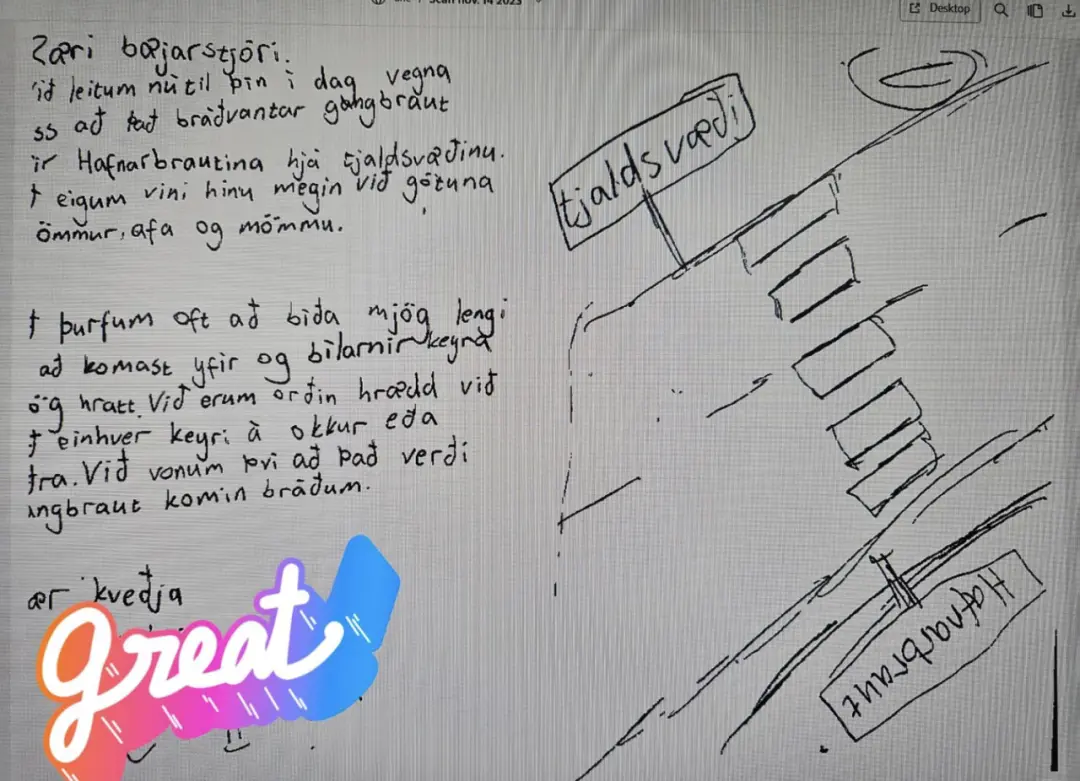 Kæri bæjarstjóri.
ið leitum nú til þín í dag vegna
ss að það bráðvantar gangbraut
ir Hafnarbrautina hjá tjaldsvæðinu.
ð eigum vini hinu megin við götuna
ömmur, afa og mömmu.
ð þurfum oft að bíða mjög lengi
að komast yfir og bílarnir keyra
ög hratt. Við erum orðin hrædd við
ð einhver keyri á okkur eða
ðra. Við vonum því að það verði
angbraut komin bráðum.
ær kveðja
great
tjaldsvæði
Hafnarbraut
Desktop
Scan nov. 14 2023